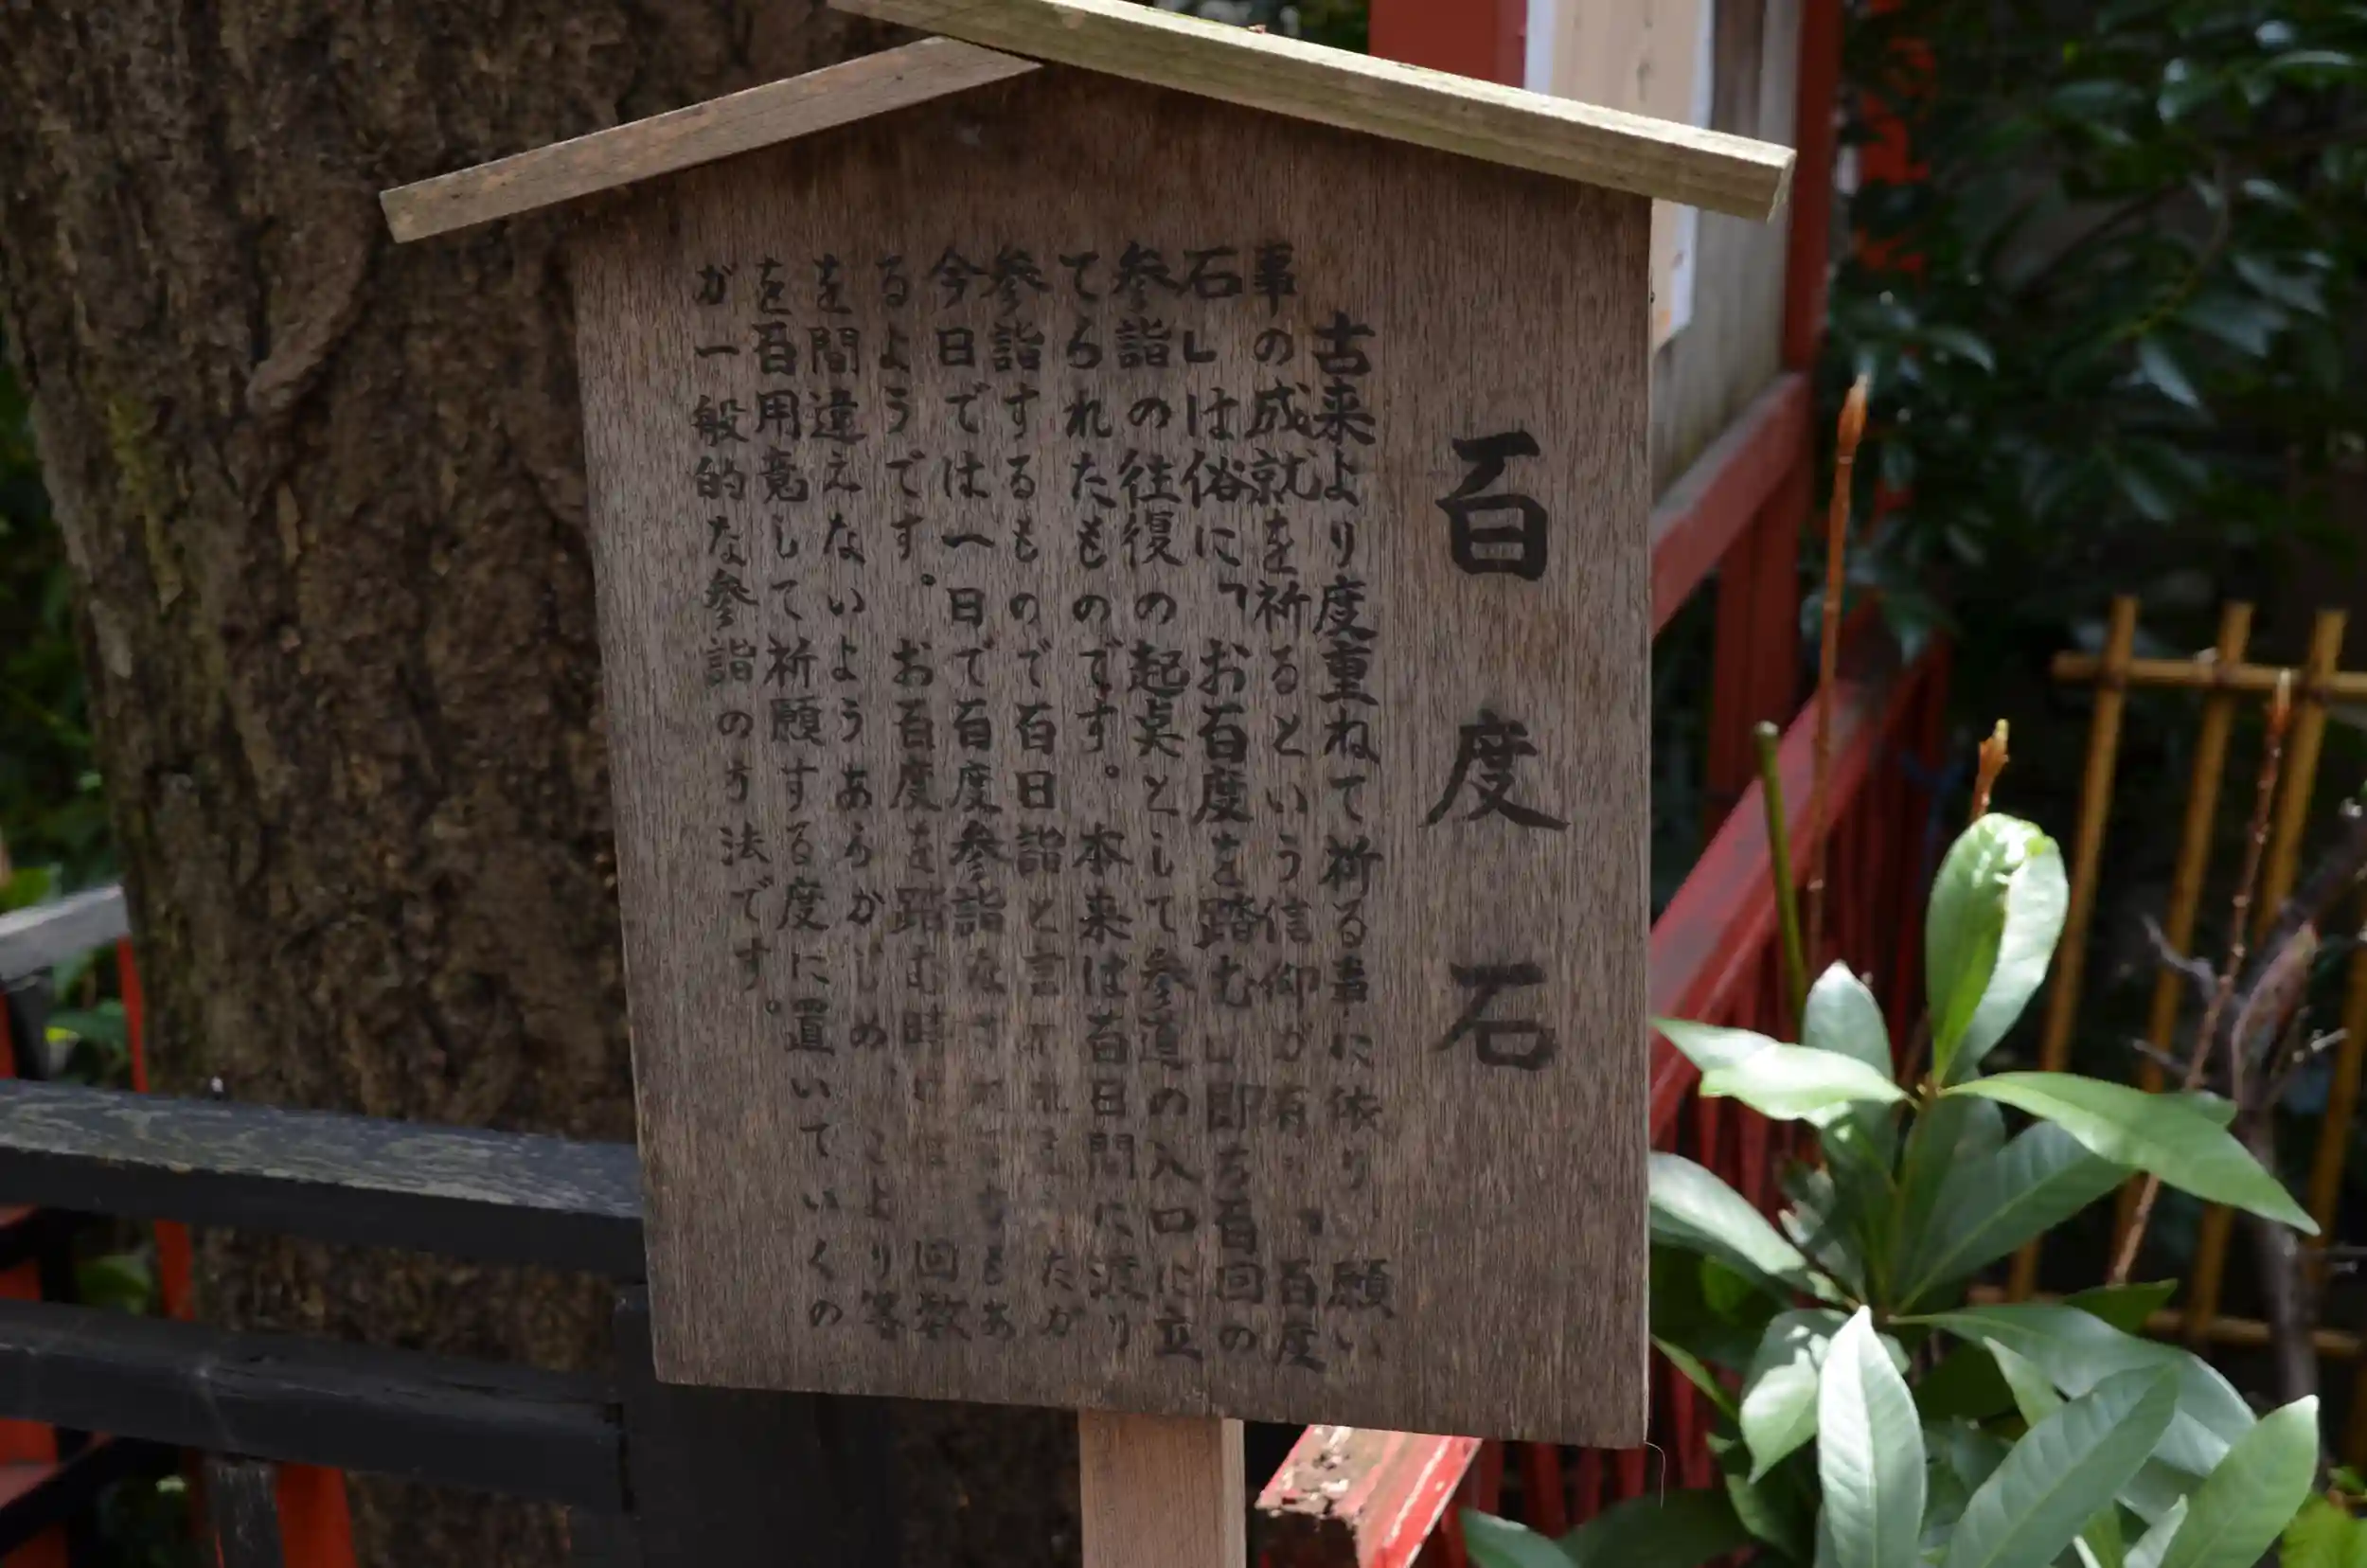 百度石
古来より度重ねて祈る事に依り、願い
事の成就を祈るという信仰が有り、「百度
石」は俗に「お百度を踏む」即ち百回の
参詣の往復の起点として参道の入口に立
てられたものです。本来は百日間に渡り
参詣するもので百日詣と言われましたが
今日では一日で百度参詣なさる もあ
るようです。お百度を踏む時には、回数
を間違えないようあらかじめ、こより等
を百用意して祈願する度に置いていくの
が一般的な参詣の方法です。